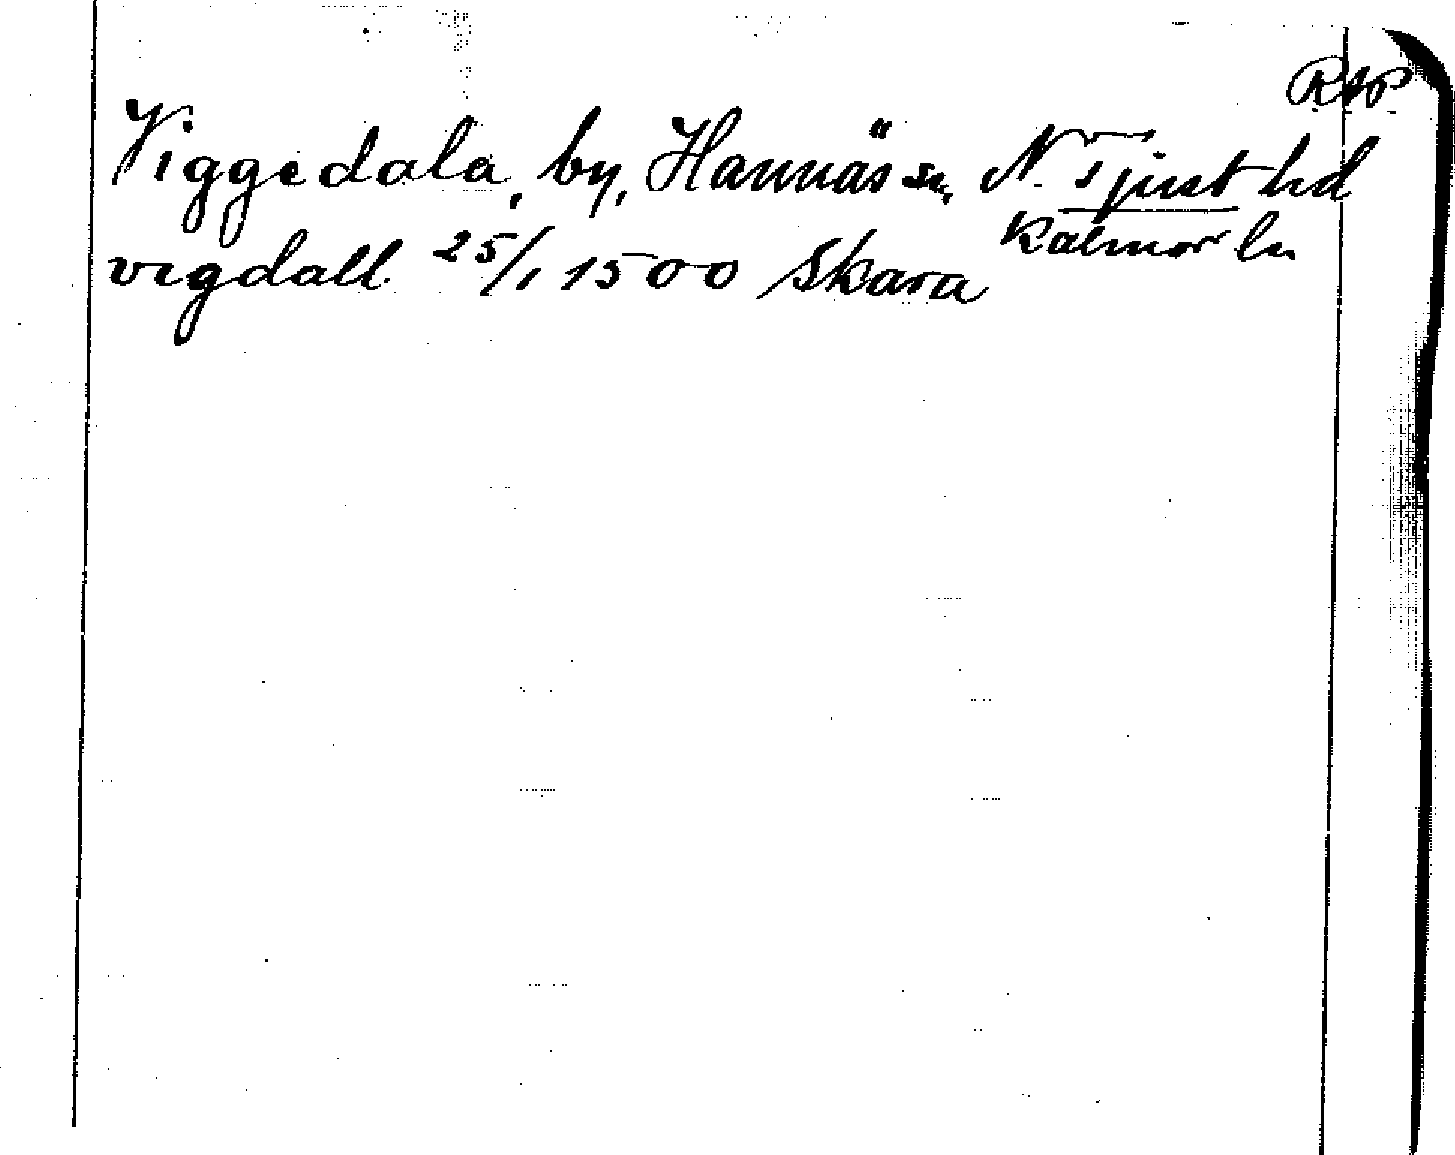 RAP
Viggedala, by, Hannäs sn, N. Tjust hd
Kalmar ln
vigdall 25/1 1500 Skara